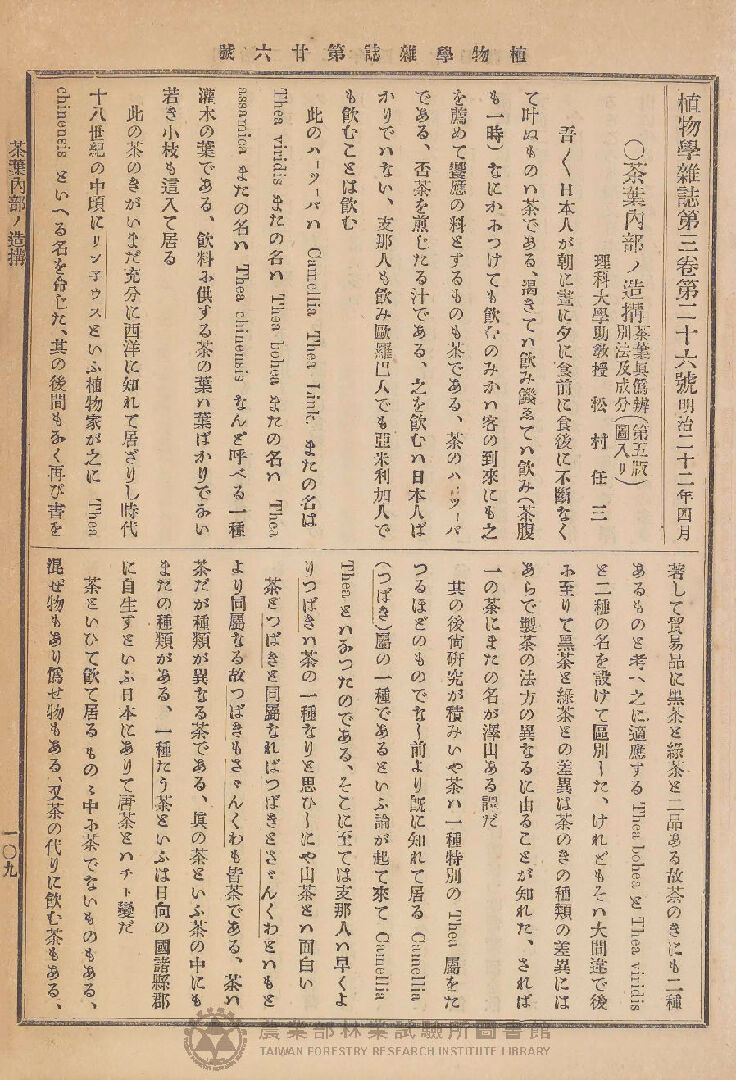 植物學雜誌第廿六號
植物學雜誌第三卷第二十六號 明治二十二年四月
〇茶葉內部ノ造搆 茶葉眞僞辨別法及成分 (第五版圖入リ)
理科大學助敎授 松村任三
吾〻日本人が朝に晝に夕に食前に食後に不斷なく
て叶ぬものハ茶である、渴きてハ飮み饑ゑてハ飮み(茶腹
も一時)なにかふつけても飮むのみかハ客の到來にも之
を薦めて饗應の料とするものも茶である、茶のハーッーバ
である、否茶を煎じたる汁である、之を飮むハ日本人ば
かりでハない、支那人も飮み歐羅巴人でも亞米利加人で
も飮むことは飮む
此のハーッーバハ Camellia Thea Link またの名は
Thea viridis またの名ハ Thea bohea またの名ハ Thea
assamica またの名ハ Thea chinensis なんど呼べる一種
灌木の葉である、飮料ふ供する茶の葉ハ葉ばかりでふい
若き小枝も這入て居る
此の茶のきがいまだ充分に西洋に知れて居ざりし時代
十八世紀の中頃にリンチウスといふ植物家が之に Thea
chinensis といへる名を命じた、其の後間もふく再び書を
著して貿易品に黑茶と綠茶と二品ある故茶のきにも二種
あるものと考へ之に適應する Thea bohea と Thea viridis
と二種の名を設けて區別した、けれどもそハ大間違で後
ふ至りて黑茶と綠茶との差異は茶のきの種類の差異には
あらで製茶の法方の異なるに由ることが知れた、されば
一の茶にまたの名が澤山ある譯だ
其の後尙硏究が積みいや茶ハ一種特別の Thea 屬をた
つるほどのものでなし前より旣に知れて居る Camellia
(つばき)屬の一種であるといふ論が起て來て Camellia
Thea とハふつたのである、そこに至ては支那人ハ早くよ
りつばきハ茶の一種なりと思ひしにや山茶とハ面白い
茶とつばきと同屬なればつばきとさゞんくわとハもと
より同屬なる故つばきもさゞんくわも皆茶である、茶ハ
茶だが種類が異なる茶である、眞の茶といふ茶の中にも
またの種類がある、一種たう茶といふは日向の國諸縣郡
に自生すといふ日本にありて唐茶とハチト變だ
茶といひて飮て居るものゝ中ふ茶でないものもある、
混ぜ物もあり僞せ物もある、又茶の代りに飮む茶もある、
茶葉內部ノ造搆
一〇九
農業部林業試驗所圖書館
TAIWAN FORESTRY RESEARCH INSTITUTE LIBRARY